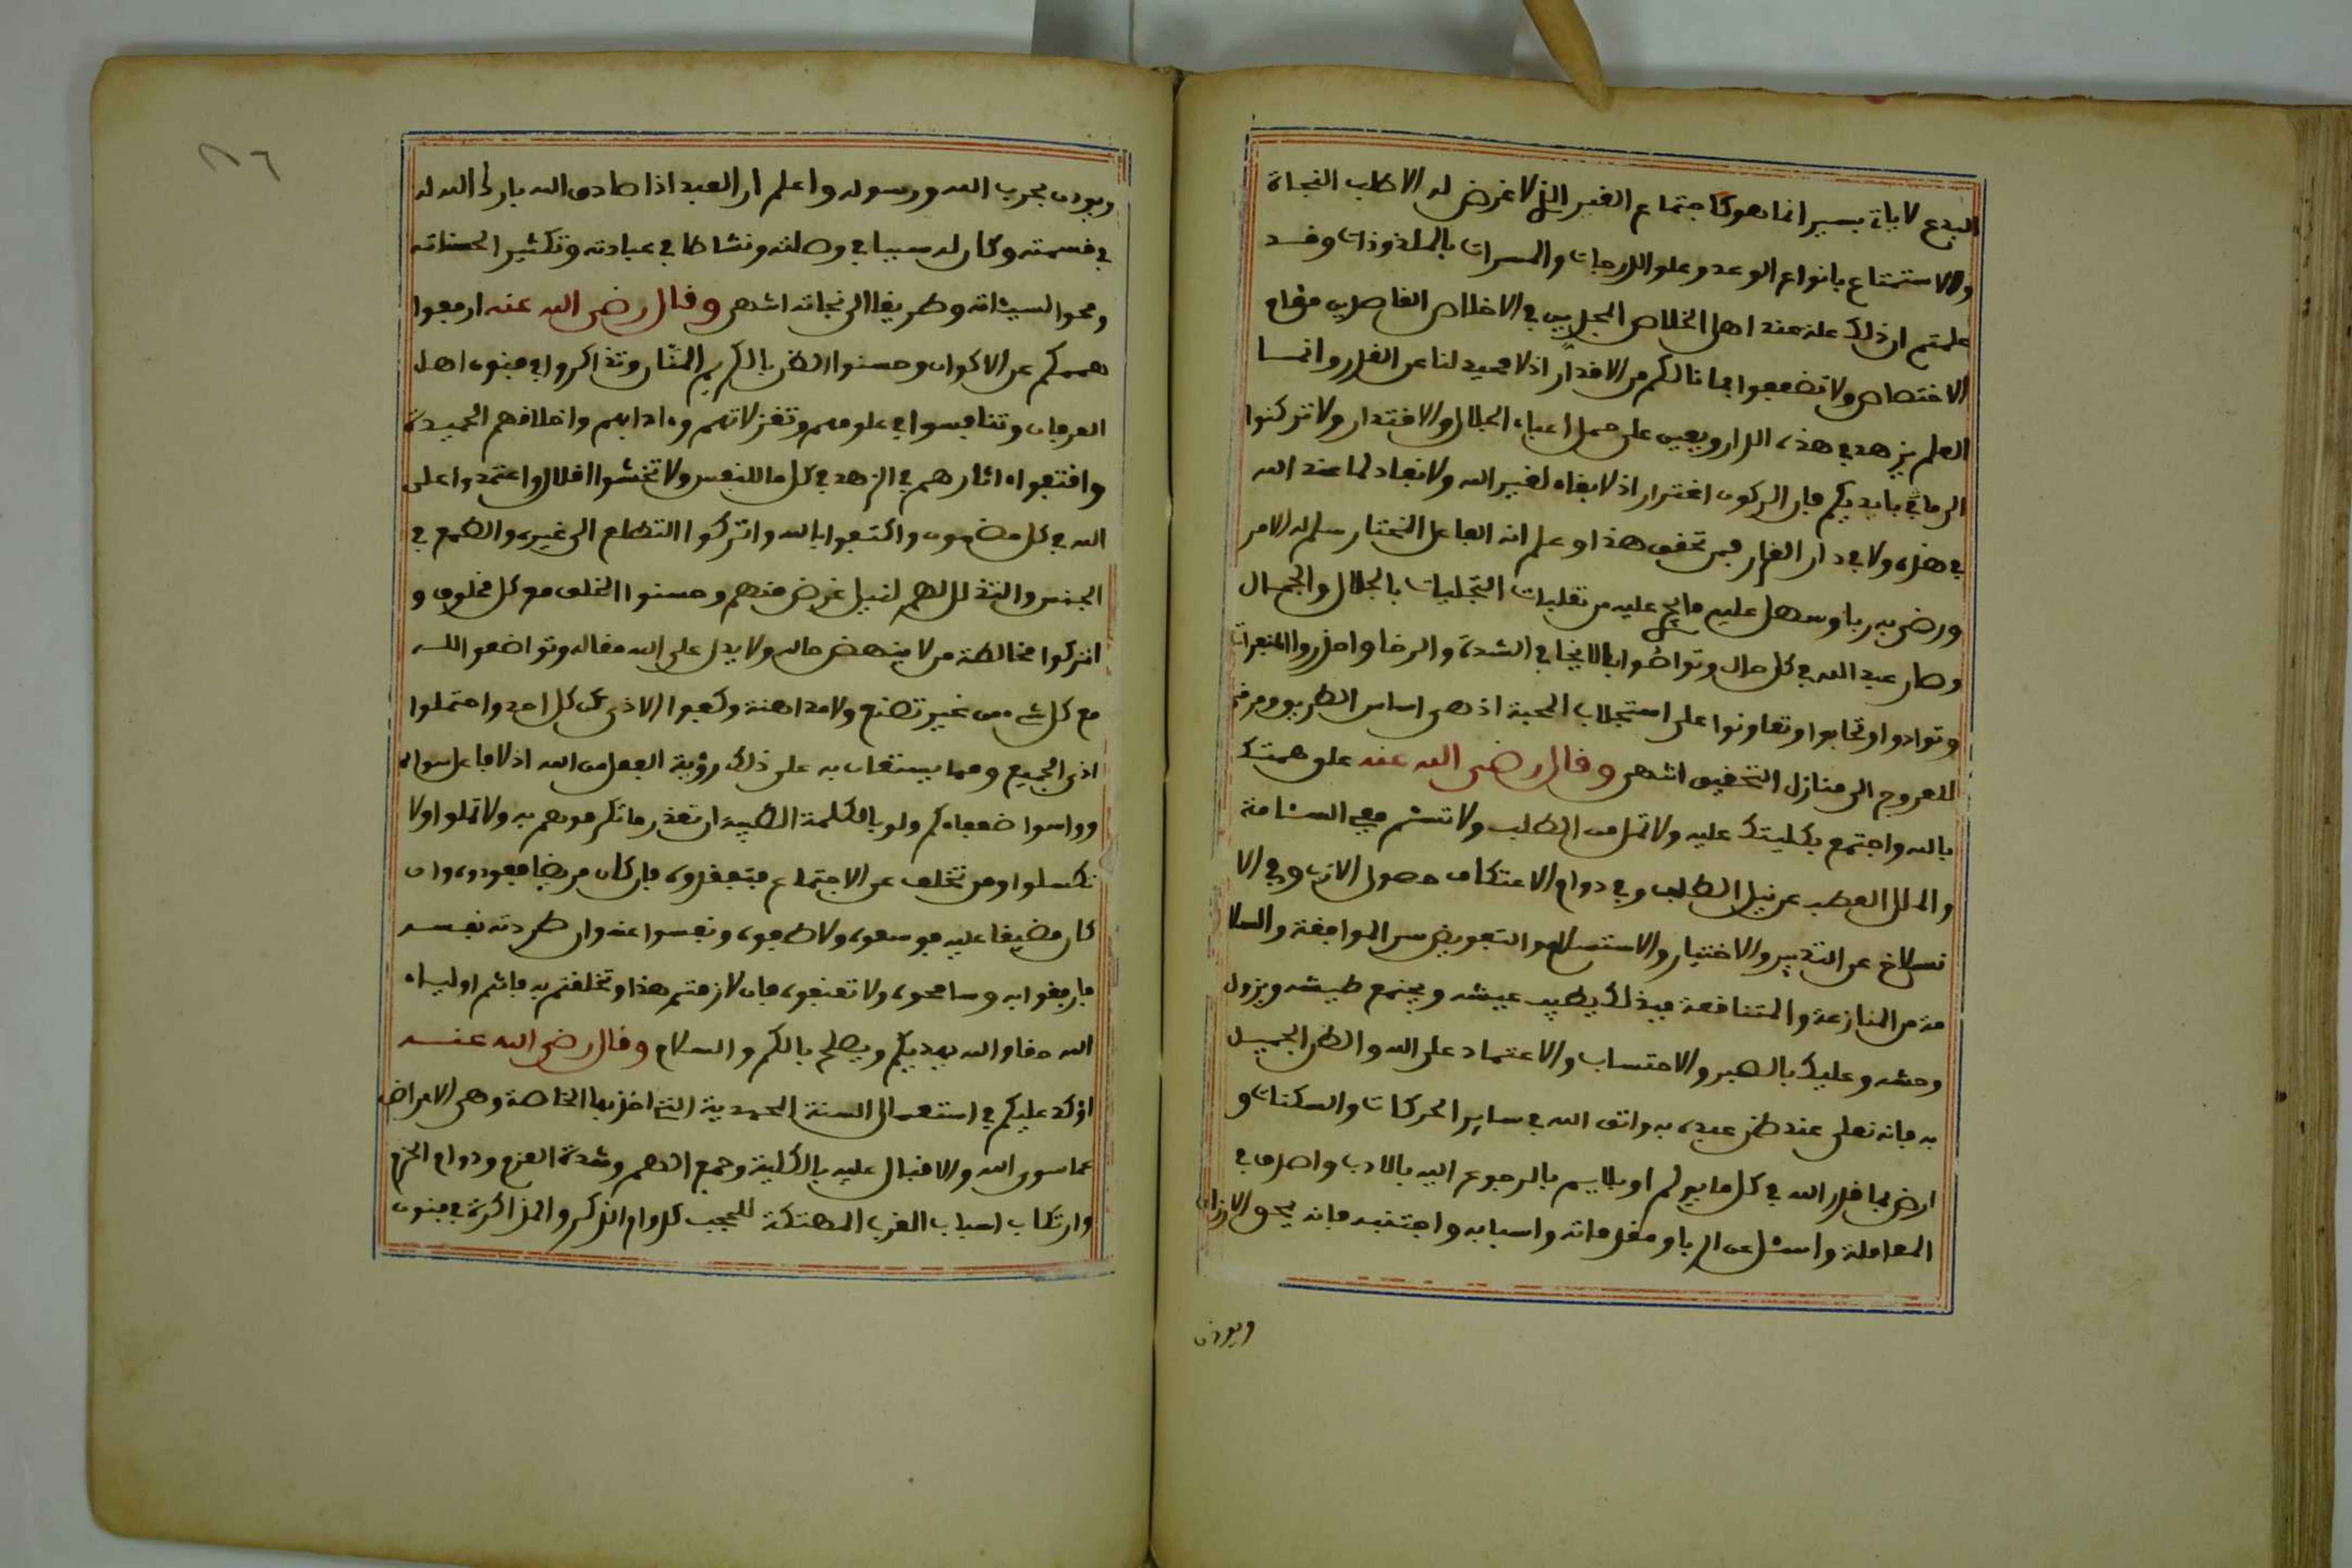 البدع لايات بسير انما هو كاجتماع الغير الذي لا غرض له الا طلب النجاة
والاستمتاع بانواع الوعد وعلو الدرجات والمسرات بالملذوذات وقد
علمتم ان ذلك علة عند اهل الخلاص في الاخلاص مقام
الاختصاص ولا تضعفوا بما نالكم من الاقدار اذ لا محيد لنا عن القدر وانما
العلم يزهد في هذه الدار ويعين على حمل اعباء الجلال والاقتدار ولا تركنوا
الى ما في بايديكم فان الركون اغترار اذ لا بقاء لغير الله ولا نفاد لما عند الله
في هذه ولا في دار القرار فمن تحقق هذا وعلم انه الفاعل المختار سلم له الامر
ورضي به ربا وسهل عليه ما يجري عليه من تقلبات التجليات بالجلال والجمال
وصار عبد الله في كل حال وتواصوا بالله في الشدة والرخا واحذروا المنفرات
وتوادوا وتحابوا وتعاونوا على استجلاب المحبة اذ هي اساس الطريق ومرقى
للعروج الى منازل التحقيق انتهى وقال رضي الله عنه علق همتك
بالله واجتمع بكليتك عليه ولا تمل من الطلب ولا تسئم ففي السئامة
والملل العطب عن نيل الطلب وفي دوام الاعتكاف حصول الارب وفي الا
نسلاخ عن التدبير والاختيار والاستسلام والتفويض سر الموافقة والسلا
مة من المنازعة والمتناقضة فبذلك يطيب عيشه ويجتمع طيشه ويزول
وحشه وعليك بالصبر والاحتساب والاعتماد على الله والظن الجميل
به فانه تعلى عند ظن عبده به واتق الله في ساير الحركات والسكنات و
ارض بما قدر الله في كل ما يولم او يلايم بالرجوع اليه بالادب واصدق في
المعاملة واسئل عن الربا ومقدماته واسبابه واجتنبه فانه يمحق الارزاق
ويوذن
ويوذن بحرب الله ورسوله واعلم ان العبد اذا صادق الله بارك الله له
في قسمته وكان له سببا في وصلته ونشاطا في عبادته وتكثير الحسناته
ومحو السيئاته وطريقا الى نجاته انتهى وقال رضي الله عنه ارفعوا
هممكم عن الاكوان وحسنوا الظن بالكريم المنان وتذاكروا في فنون اهل
العرفان وتنافسوا في علومهم وتغزلاتهم وءادابهم واخلاقهم الحميدة
واقتفوا ءاثارهم في الزهد في كل ما للنفس ولا تخشوا اقلال واعتمدوا على
الله في كل مضمون واكتفوا بالله واتركوا التطلع الى غيره والطمع في
الجنس والتذلل لهم لنيل غرض منهم وحسنوا الخلق مع كل مخلوق و
اتركوا مخالطة من لا ينهض حاله ولا يدل على الله مقاله وتواضعوا لله
مع كل شيء من غير تصنع ولا مداهنة وكفوا الاذى عن كل احد واحتملوا
اذى الجميع ومما يستعان به على ذلك رؤية الفعل من الله اذ لا فاعل سواه
وواسوا ضعفاءكم ولو بالكلمة الطيبة ان تعذر ما تكرمونهم به ولا تملوا ولا
تكسلوا ومن تخلف عن الاجتماع فتفقدوه فان كان مريضا فعودوه وان
كان مضيقا عليه فوسعوه ولاطفوه ونفسوا عنه وان طردته نفسه
فارفقوا به وسامحوه ولا تعنفوه فان لازمتم هذا وتخلقتم به فانتم اولياء
الله حقا والله يهديكم ويصلح بالكم والسلام وقال رضي الله عنه
اؤكد عليكم في استعمال السنة المحمدية التي اخذ بها الخاصة وهي الاعراض
عما سوى الله والاقبال عليه بالكلية وجمع الهم وشدة العزم ودوام الحزم
وارتكاب اسباب القرب المهتكة للحجب كدوام الذكر والمذاكرة في فنون